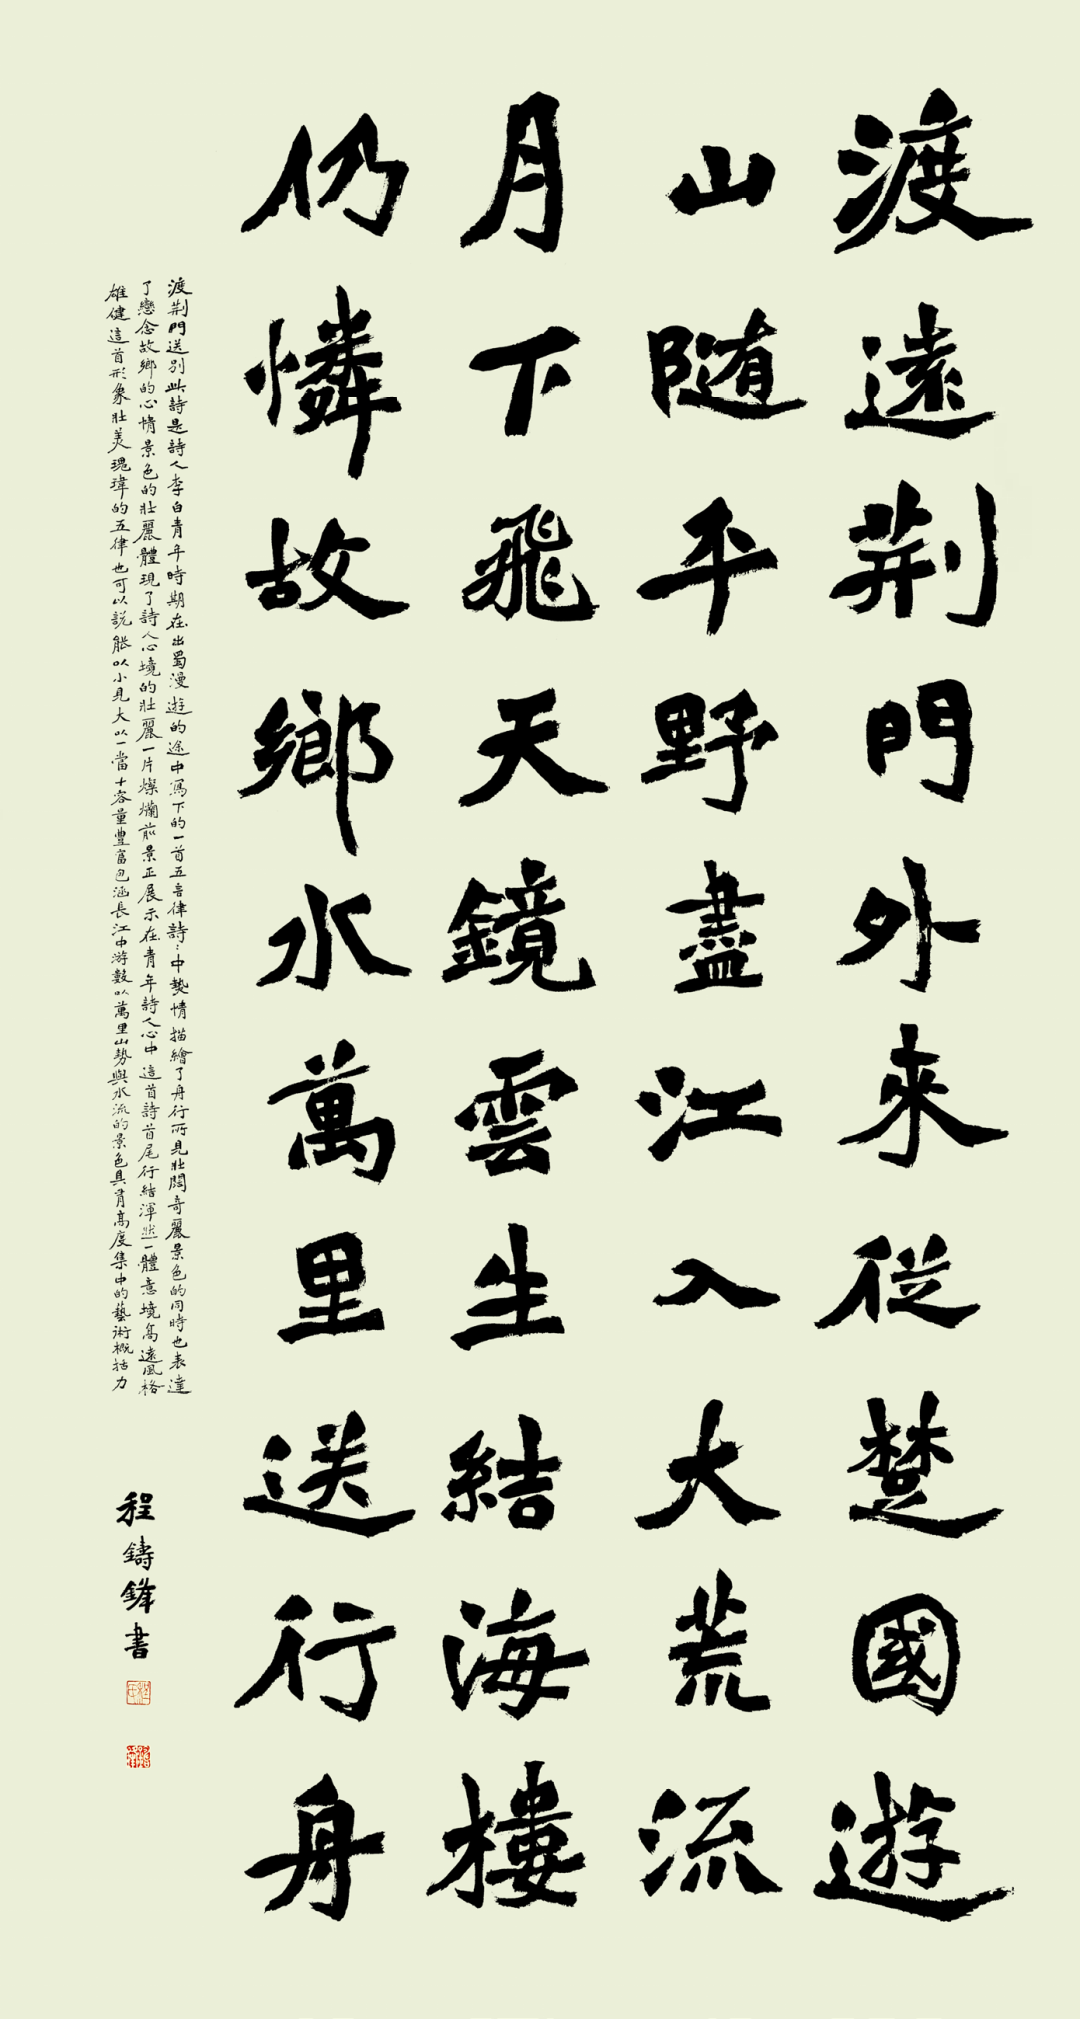 渡遠荆門外來從楚國遊
山随平野盡江入大荒流
月下飛天鏡雲生結海樓
仍憐故鄉水萬里送行舟
渡荆門送别此詩是詩人李白青年時期在出蜀漫遊的途中寫下的一首五言律詩詩中熱情描繪了舟行所見壯闊奇麗景色的同時也表達
了戀念故鄉的心情景色的壯麗體現了詩人心境的壯麗一片燦爛前景正展示在青年詩人心中這首詩首尾行結渾然一體意境高遠風格
雄健這首形象壯美瑰瑋的五律也可以説能以小見大以一當十容量豐富包涵長江中游數以萬里山勢與水流的景色具有高度集中的藝術概括力
程鑄鋒書